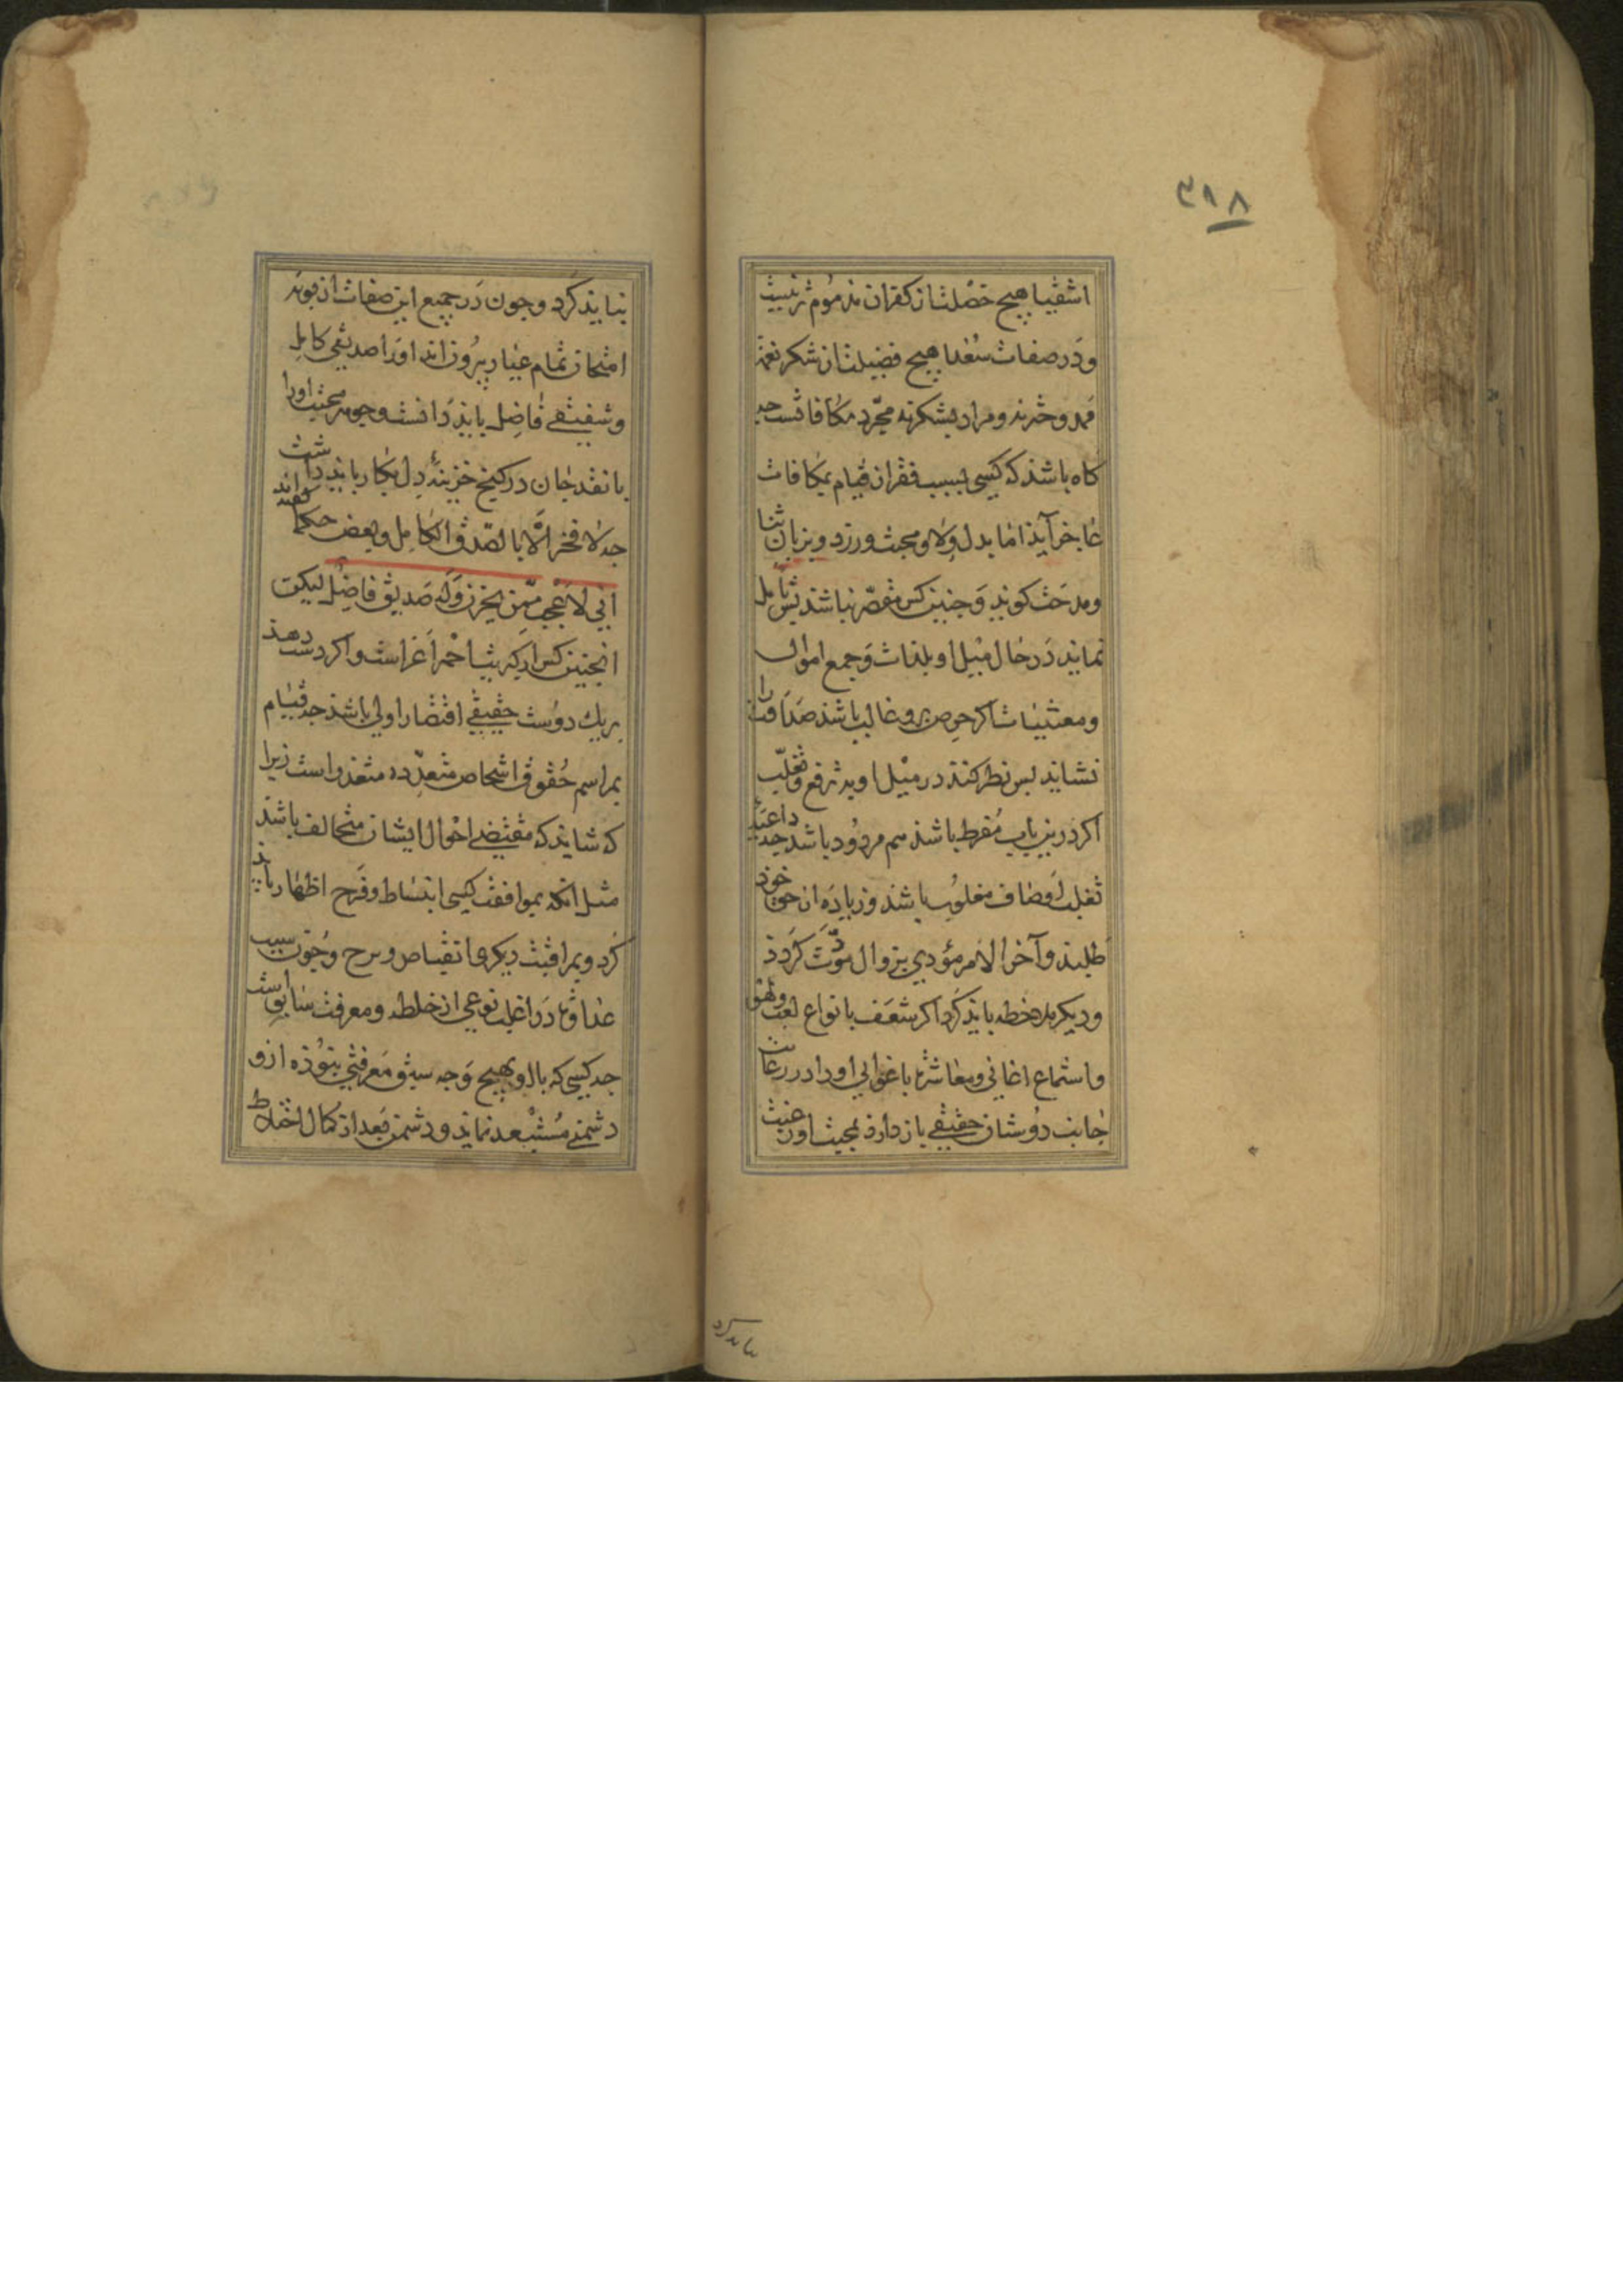 ۳۱۸
اشقیا هیچ خصلت از کفران مذموم تر نیست
و در صفات سعدا هیچ فضیلت از شکر نعمت
ممدوح تر نه و مراد بشکر نه مجرد مکافاتست چه
کاه باشد که کسی بسبب فقر از قیام بمکافات
عاجز آید اما بدل ولا و محبت ورزد و بزبان ثنا
و مدحت کوید و چنین کس مقصر نباشد پس تامل
نماید در حال میل او بلذات و جمع اموال
و مقتنیات اکر حرص برو غالب باشد صداقت را
نشاید پس نظر کند در میل او بترفع و تغلب
اکر درین باب مفرط باشد هم مردود باشد چه داعیه
تغلب اوصاف مغلوب باشد و زیاده از حق خود
طلبد و آخر الامر مؤدی بزوال مودت کردد
و دیکر ملاحظه باید کرد اکر شعف بانواع لعب و لهو
و استماع اغانی و معاشرت با غوانی او را در رعایت
جانب دوستان حقیقی باز دارد بمحبت او رغبت
نباید کرد
نباید کرد و چون در جمیع این صفات از بوته
امتحان تمام عیار بیرون اند او را صدیقی کامل
و شفیقی فاضل باید دانست و جوهر محبت او را
با نقد جان در کنج خزینهٔ دل بکار باید داشت
چه لا فخر الا بالصدق الکامل و بعض حکما کفته اند
انی لا عجب ممن یحزن وله صدیق فاضل لیکن
انچنین کس از کبریت احمر اعز است و اکر دست دهد
بر یک دوست حقیقی اقتصار اولی باشد چه قیام
بمراسم حقوق اشخاص متعدده متعذر است زیرا
که شاید که مقتضی احوال ایشان متخالف باشد
مثل انکه بموافقت کسی انبساط و فرح اظهار باید
کرد و بمراقبت دیکری انقباص و ترح و چون سبب
عداوت در اغلب نوعی از خلطه و معرفت سابق است
چه کسی که با او بهیچ وجه سبق معرفتی نبوده از و
دشمنی مستبعد نماید و دشمن بعد از کمال اختلاط